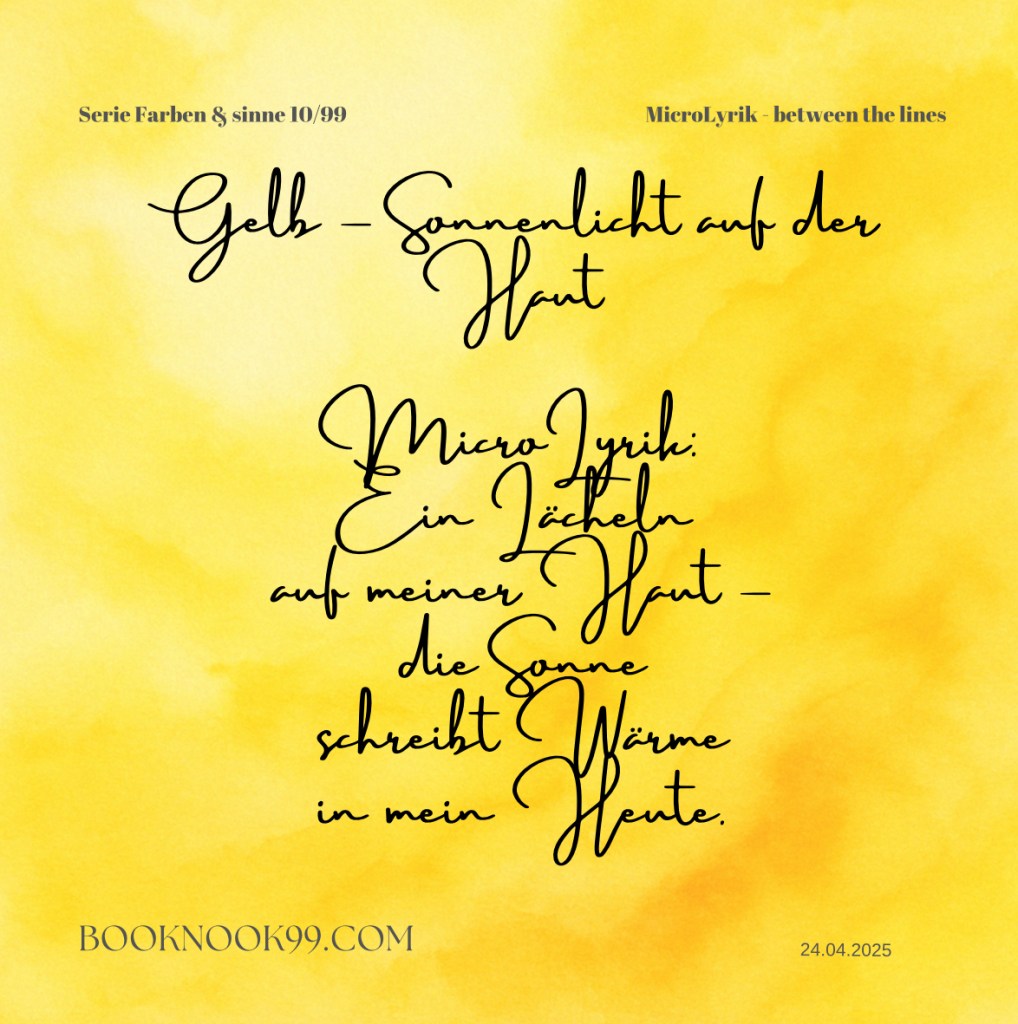 Serie Farben & sinne 10/99
MicroLyrik - between the lines
Gelb – Sonnenlicht auf der
Haut
MicroLyrik:
Ein Lächeln
auf meiner Haut –
die Sonne
schreibt Wärme
in mein Heute.
BOOKNOOK99.COM
24.04.2025